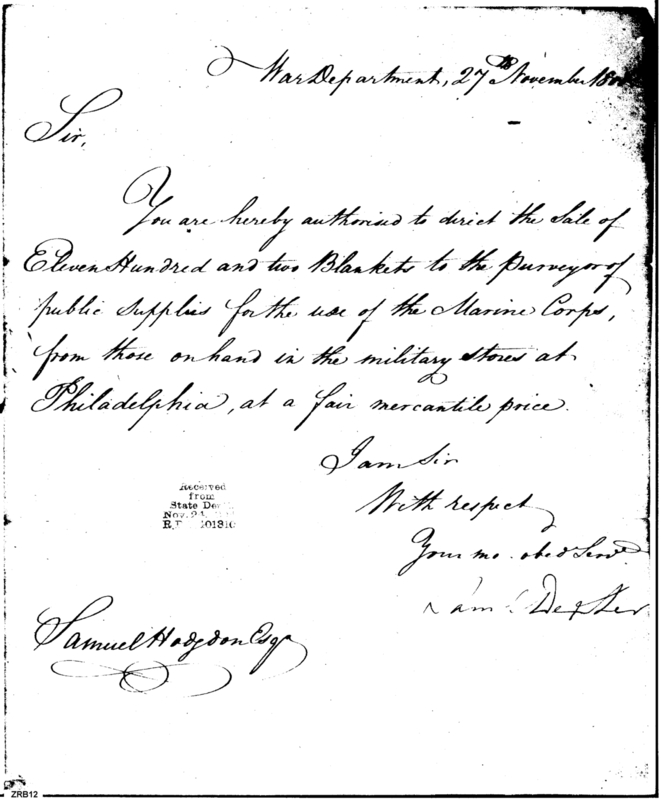 War Department, 27th November 180
Sir,
You are hereby authorised to direct the Sale of
Eleven Hundred and two Blankets to the Purveyor of
public Supplies for the use of the Marine Corps,
from those on hand in the military stores at
Philadelphia, at a fair mercantile price.
I am Sir
With respect
Your mo. obed Servt.
Sam Dexter
Received
from
State De
Nov. 24,
R.
Samuel Hodgdon Esqr
ZRB12